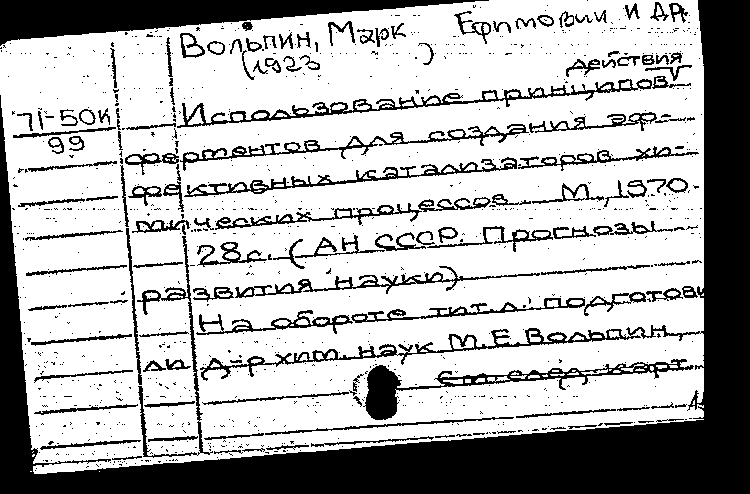 Вольпин, Марк Ефимович и др.
(1923 )
действия
71-50к Использование принципов
99
ферментов для создания эф-
фективных катализаторов хи-
мических процессов М., 1970.
28с. (АН СССР. Прогнозы
развития науки).
На обороте тит.л.: подготови
ли д-р хим. наук М.Е. Вольпин,
См. след. карт.